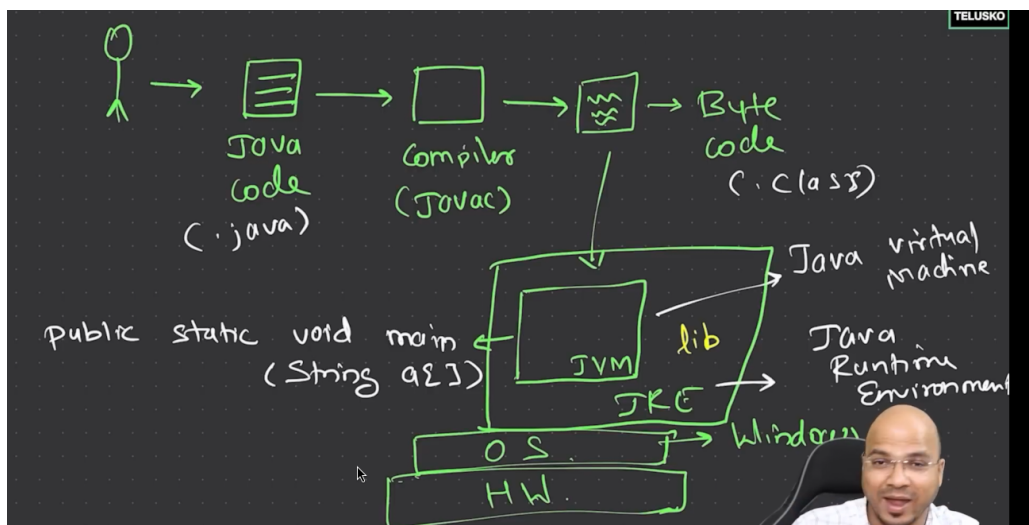 TELUSKO
Java
code
(.java)
Compiler
(Javac)
Byte
code
(.class)
Java virtual
machine
public static void main
(String a[])
JVM
lib
JRE
Java
Runtime
Environment
OS.
Windows
HW.